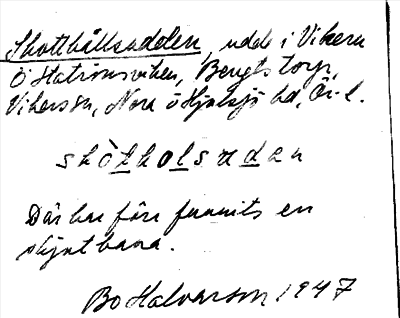 Skotthållsudden, udde i Vikern
Ö Stationsviken, Bengtstorp,
Vikersön, Nora o Hjulsjö hd, Ör. l.
skòtholsuden
Där har förr funnits en
skjutbana.
Bo Halvarson 1947